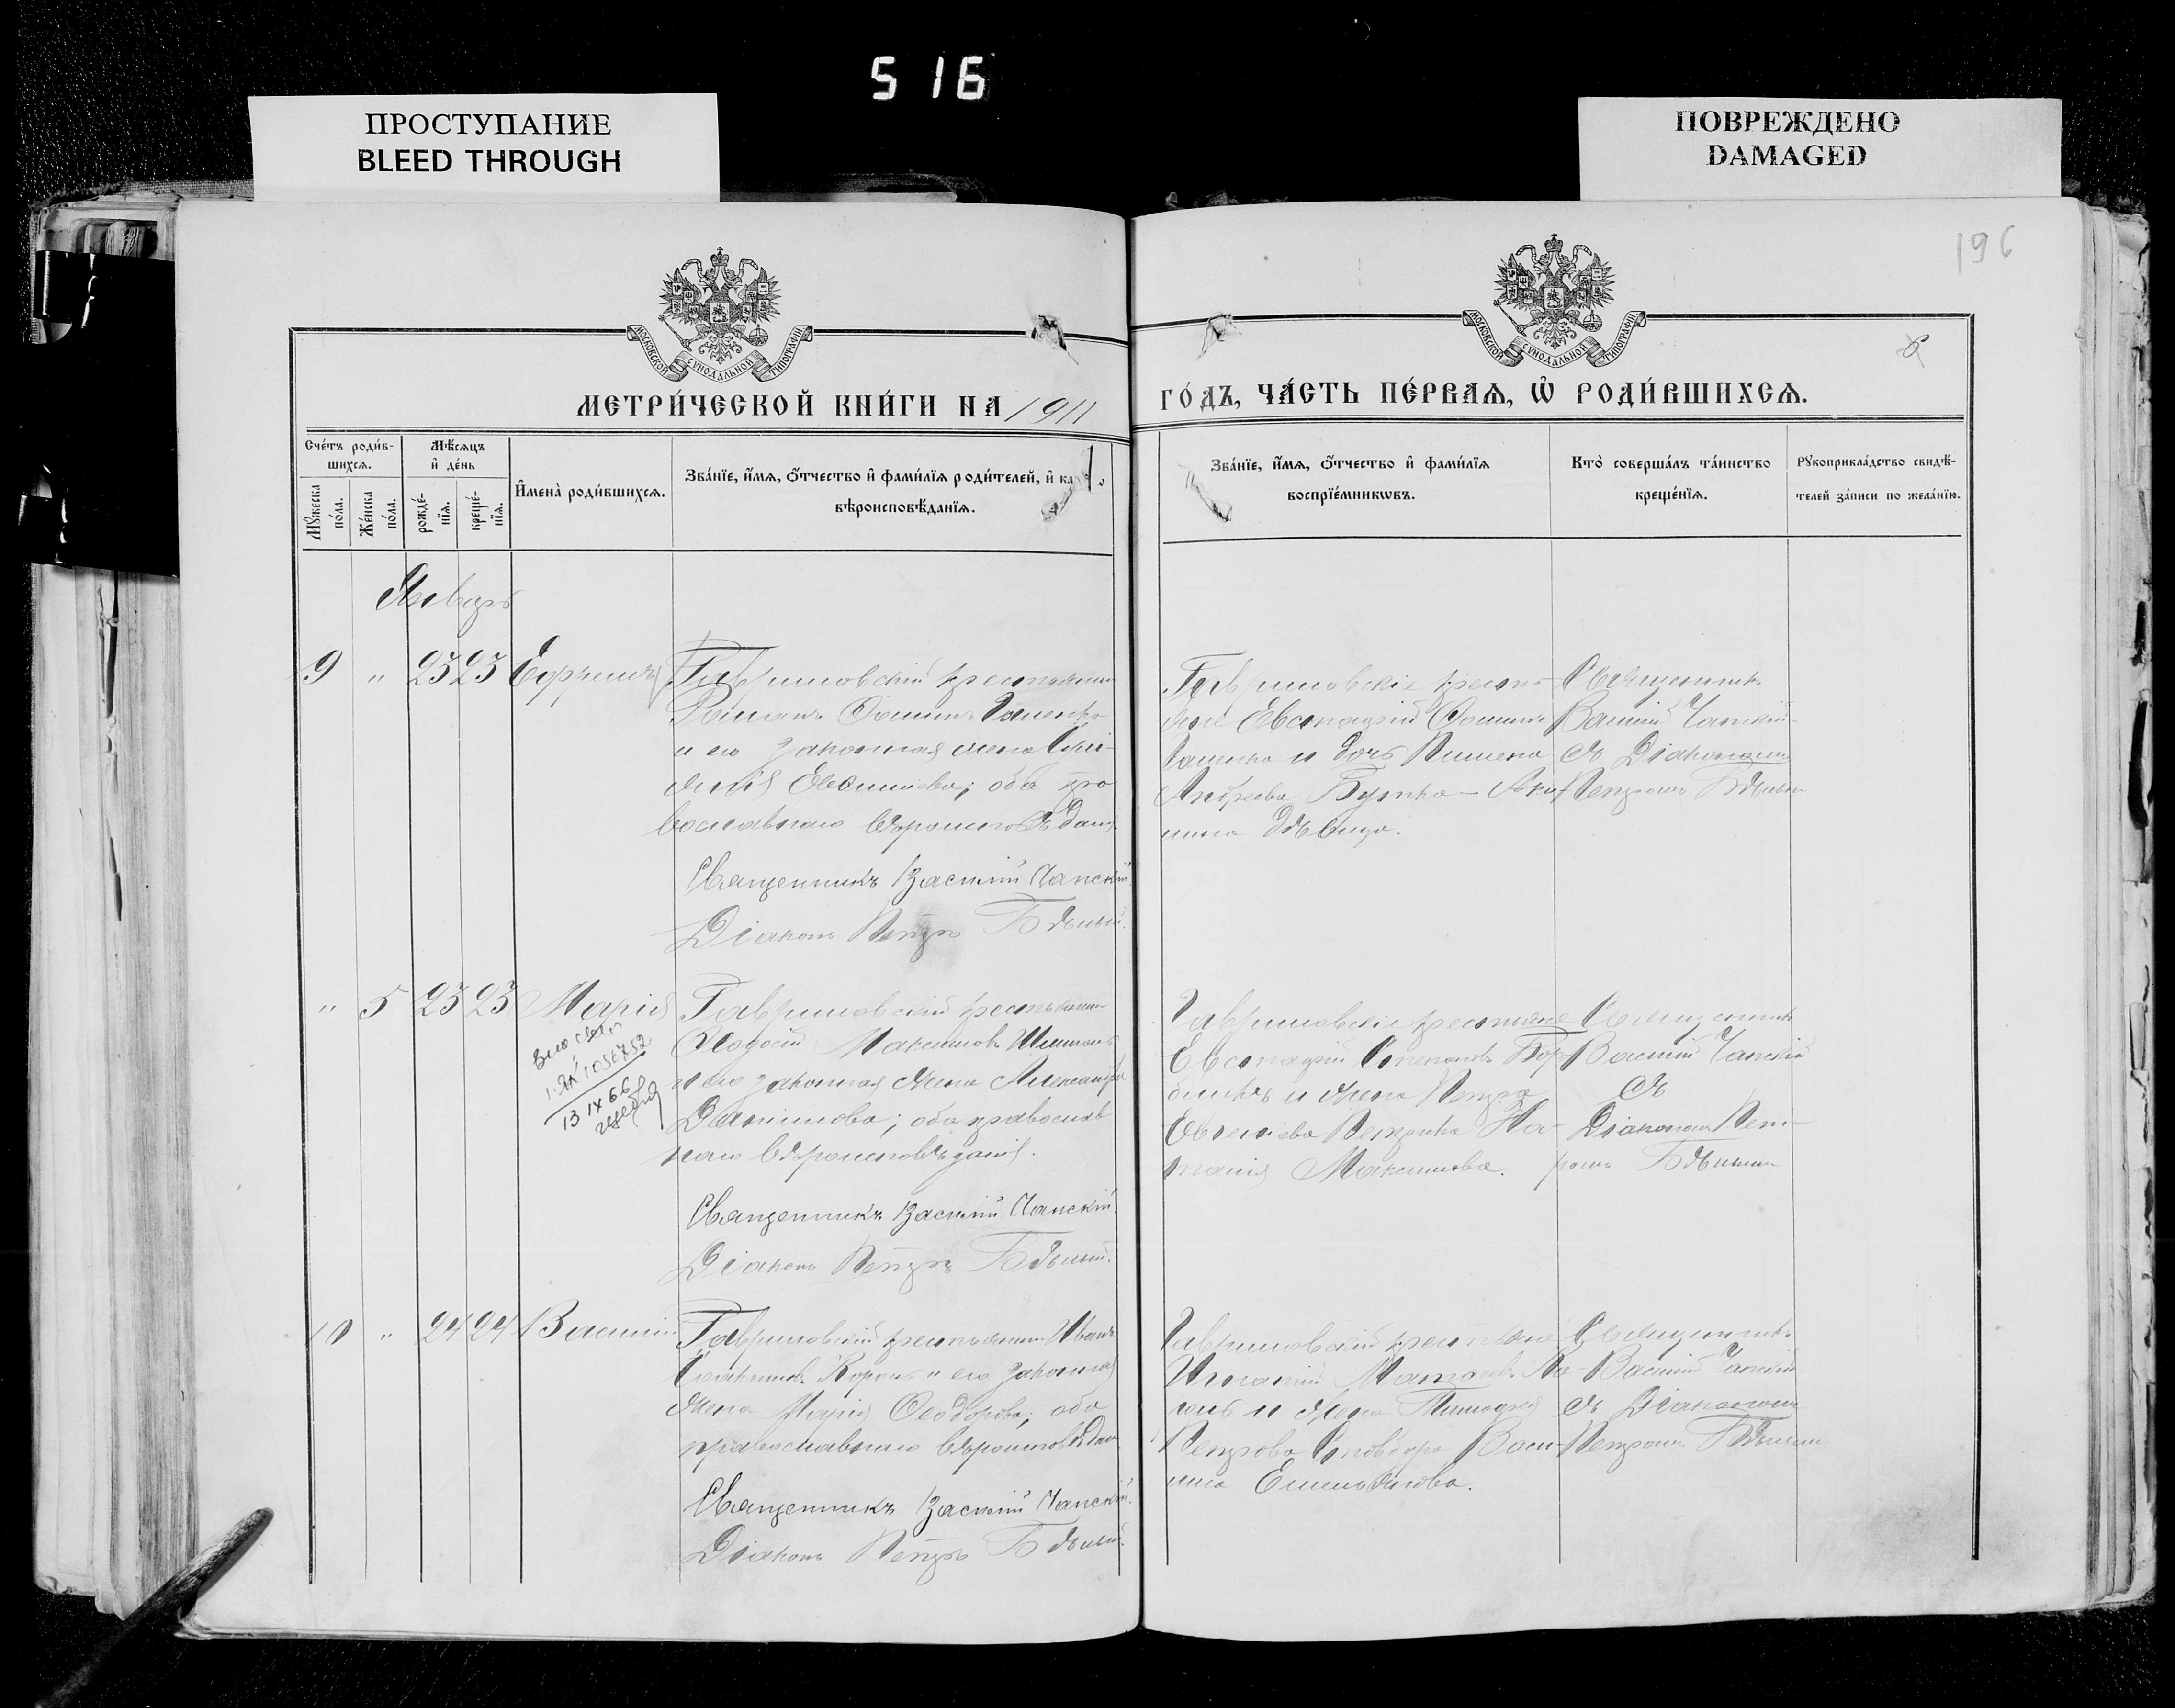 516
ПРОСТУПАНИЕ
BLEED THROUGH
ПОВРЕЖДЕНО
DAMAGED
196
МОСКОВСКОЙ СѴНОДАЛЬНОЙ ТИПОГРАФІИ
МОСКОВСКОЙ СѴНОДАЛЬНОЙ ТИПОГРАФІИ
6
МЕТРИ́ЧЕСКОЙ КНИ́ГИ НА 1911
ГО́ДЪ, ЧА́СТЬ ПЕ́РВАѦ, Ѡ҆ РОДИ́ВШИХСѦ.
Сче́тъ роди́в-
шихсѧ.
Мꙋ́жеска по́ла.
Же́нска по́ла.
Мѣ́сѧцъ
и҆ де́нь
рожде́-
нїѧ.
креще́-
нїѧ.
И҆мена̀ роди́вшихсѧ.
Зва́нїе, и҆́мѧ, ѻ҆́тчество и҆ фами́лїѧ роди́телей, и҆ ка
вѣроисповѣ́данїѧ.
Зва́нїе, и҆́мѧ, ѻ҆́тчество и҆ фами́лїѧ
воспрїе́мникѡвъ.
Кто̀ соверша́лъ та́инство
креще́нїѧ.
Рꙋкоприкла́дство свидѣ́-
телей за́писи по жела́нїю.
Январь
9 " 23 23 Ефремъ
Гавриловскій крестьянинъ
Романъ Ѳоминъ
и его законная жена
обa пра
вославнаго вѣроисповѣдан.
Священникъ Василій Чапскій.
Діаконъ Петръ Бѣлый.
Гавриловскіе кресть
яне Евстафій Ѳоминъ
и дочь Пимена
Андреева Бутка
дѣвица.
Священникъ
Василій Чапскій
съ Діакономъ
Петромъ Бѣлым
" 5 23 23 Марія
13 IX 66
Гавриловскій крестьянинъ
Ѳеодосій Максимовъ
и его законная жена Александра
Даніилова; оба православ
наго вѣроисповѣданія.
Священникъ Василій Чапскій.
Діаконъ Петръ Бѣлый.
Гавриловскіе крестьяне
Евстафій Степановъ
и жена Петра
На-
талія Максимова.
Священникъ
Василій Чапскій
съ
Діакономъ Пет-
ромъ Бѣлымъ
10 " 24 24 Василій
Гавриловскій крестьянинъ Иванъ
Король и его законная
жена Марія Ѳеодорова; оба
православнаго вѣроисповѣдан
Священникъ Василій Чапскій.
Діаконъ Петръ Бѣлый.
Гавриловскій крестьяне
Игнатій
и жена Тимофея
Петрова Васи-
лиса Емельянова.
Священникъ
Василій Чапскій
съ Діакономъ
Петромъ Бѣлым